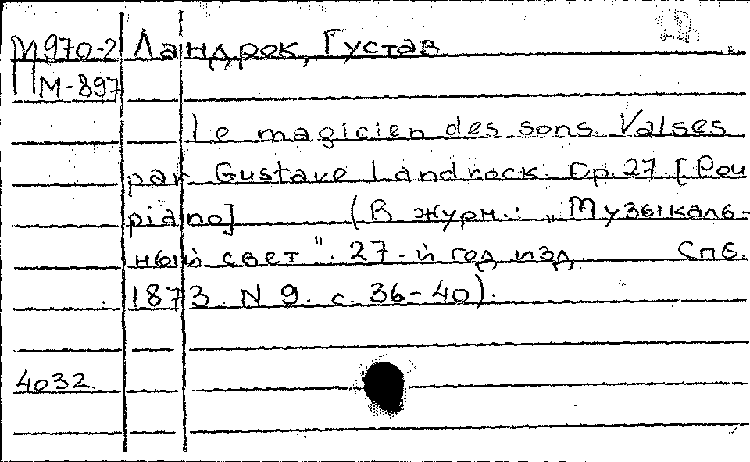 М 970-2 Ландрок, Густав
М-897
le magicien des sons. Valses
par Gustave Landrock. Op. 27 [Pou
piano] (В журн.: „Музыкаль-
ный свет". 27-й год изд. Спб.
1873. N 9. с. 36-40).
4032